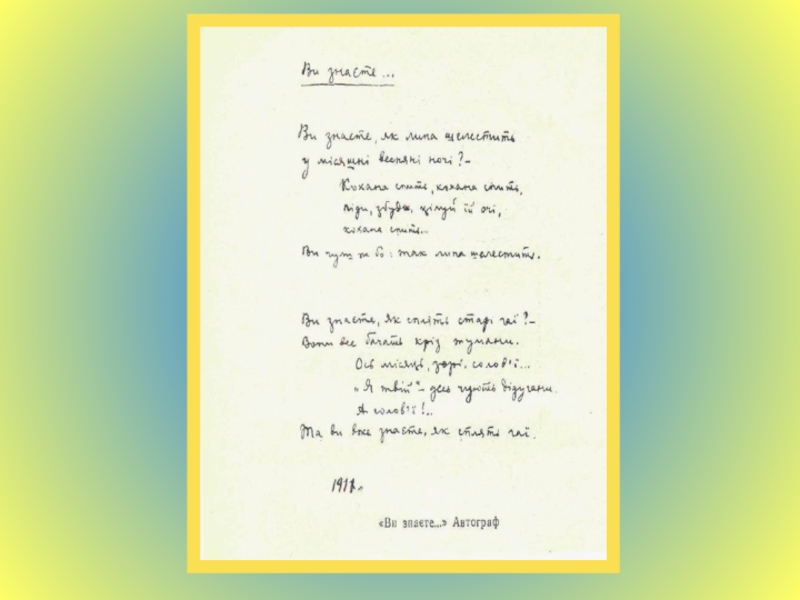 Ви знаєте...
Ви знаєте, як липа шелестить
у місяшні весняні ночі?–
Кохана спить, кохана спить,
піди, збуди, цілуй їй очі,
кохана спить..
Ви чули ж бо: так липа шелестить.
Ви знаєте, як сплять старі гаї?–
Вони все бачать крізь тумани.
Ось місяць, зорі, солов'ї...
„Я твій"– десь чують дідугани.
А солов'ї!..
Та ви вже знаєте, як сплять гаї.
«Ви знаєте...» Автограф